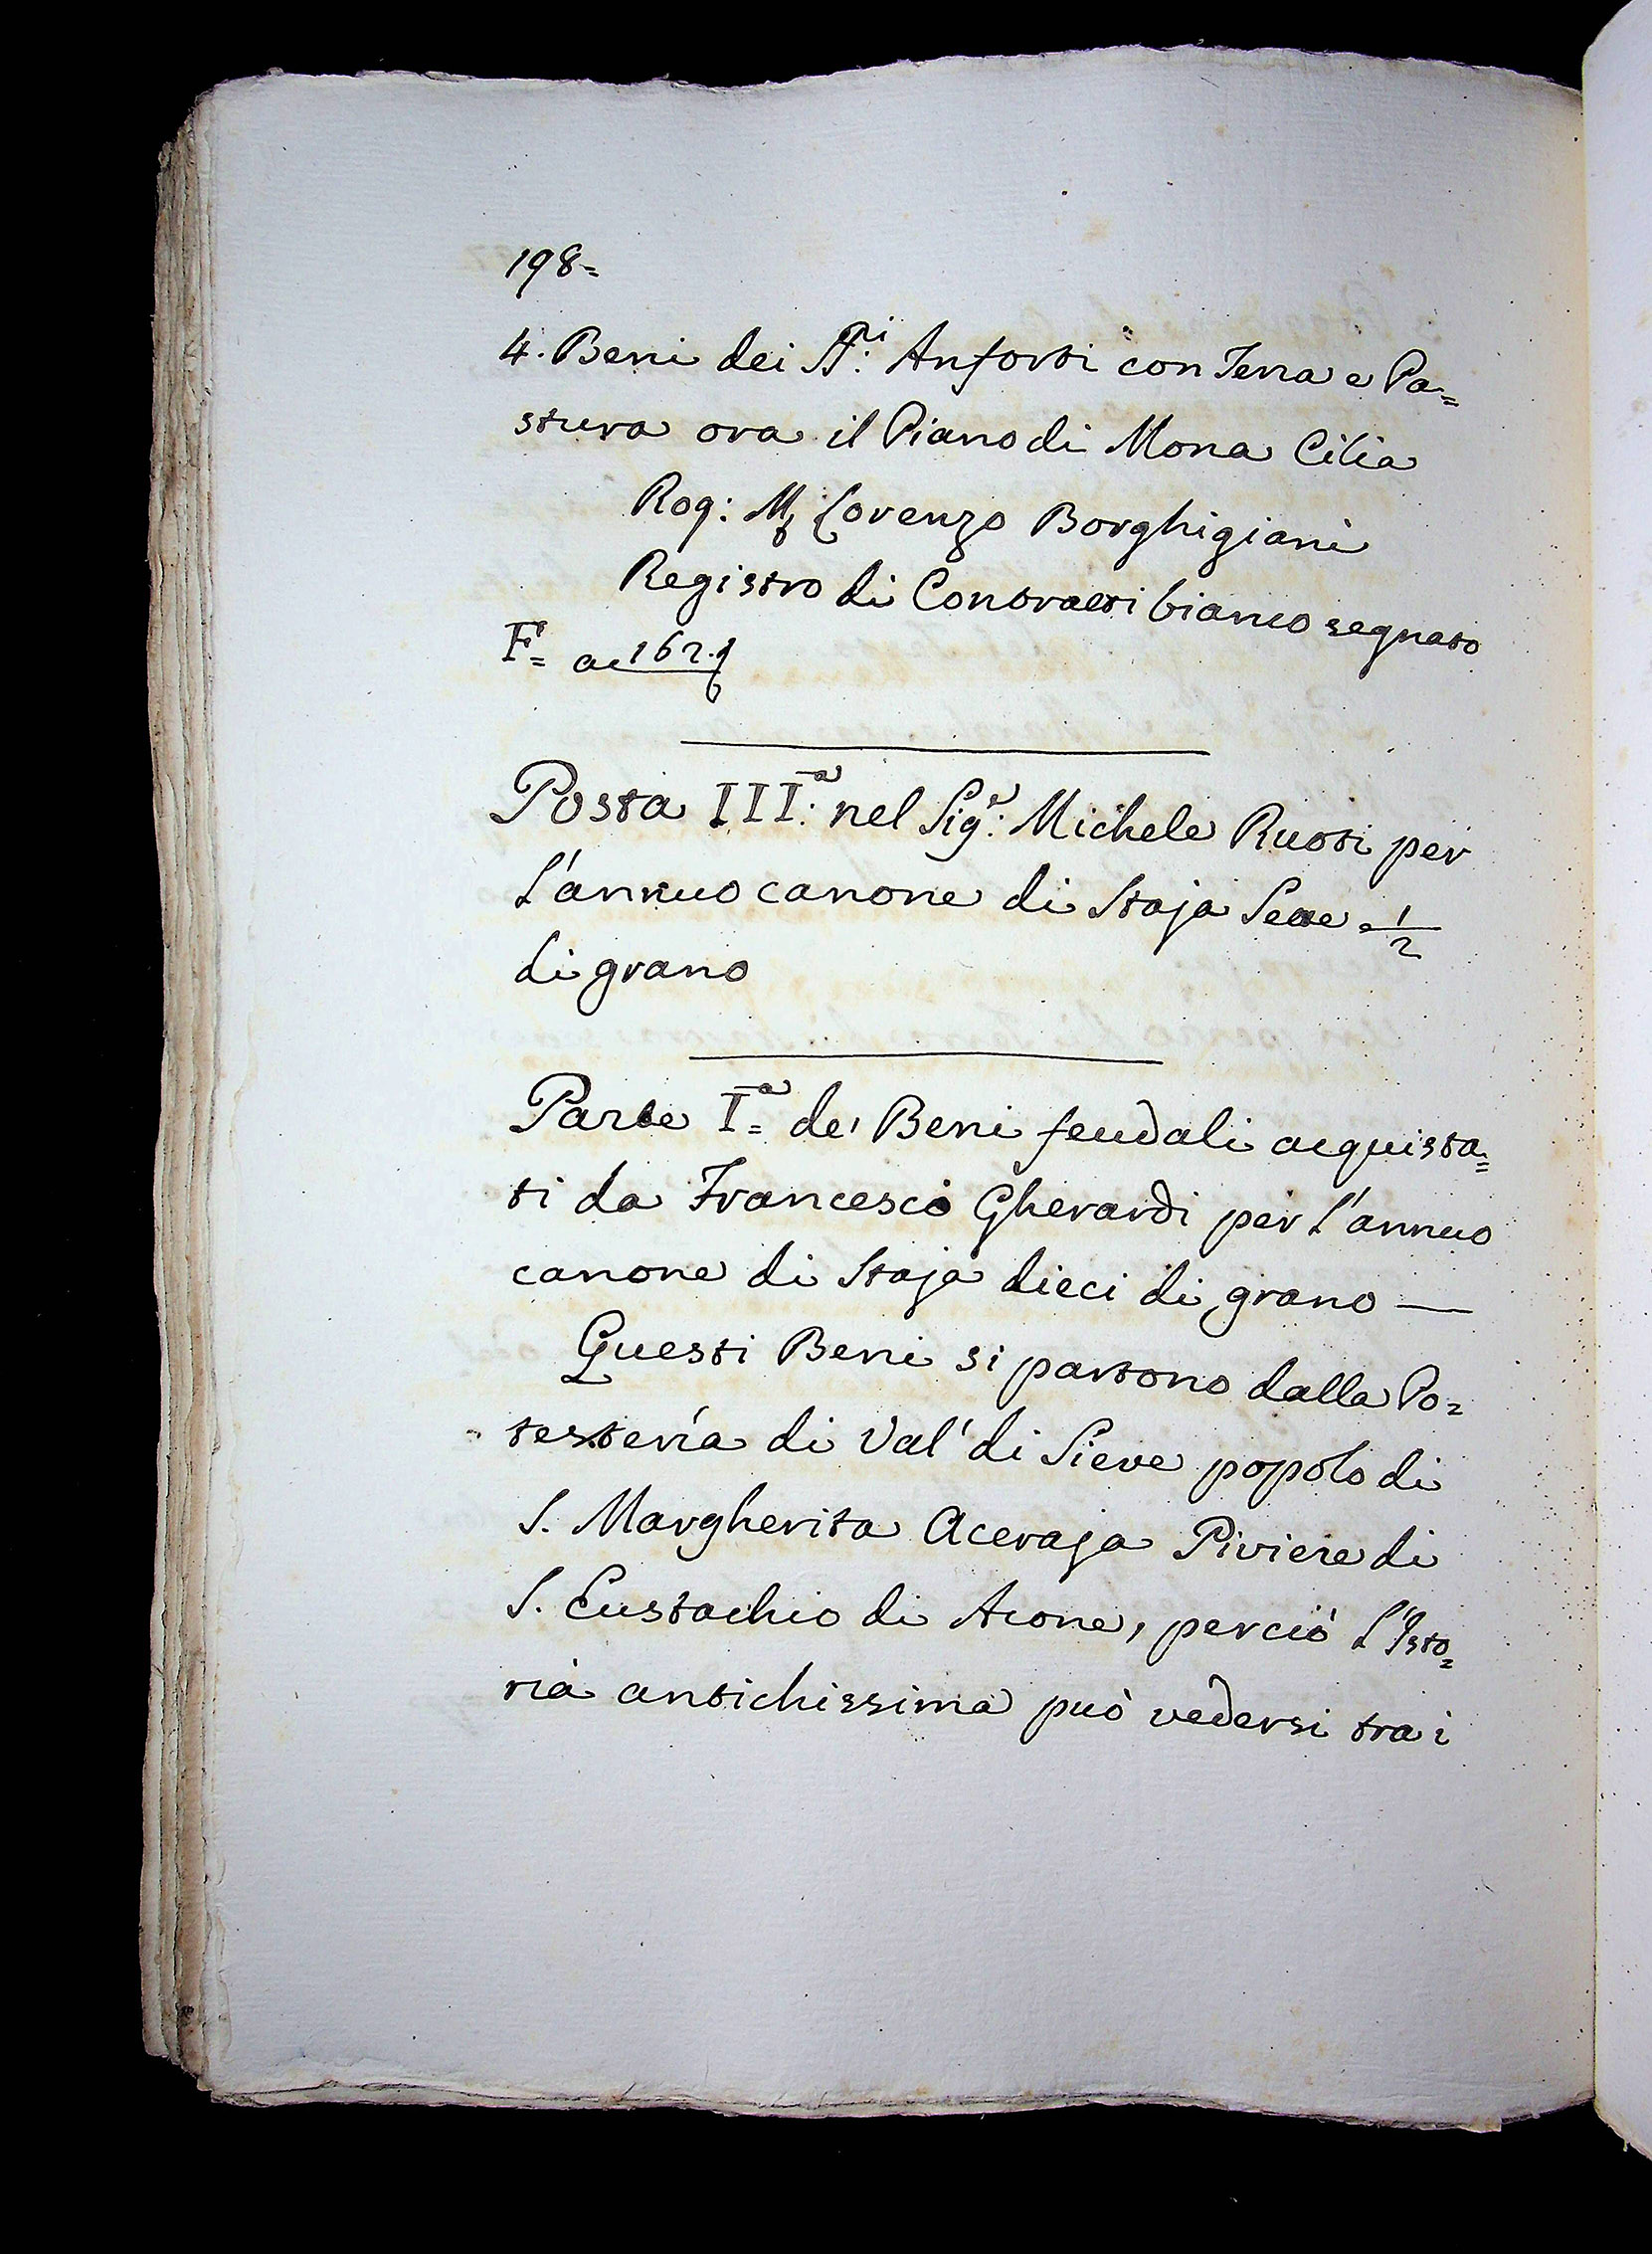 198=
4. Beni dei SS.ri Anforti con Terra a Pa=
stura ora il Piano di Mona Cilia
Rog: Mr Lorenzo Borghigiani
Registro di Contratti bianco segnato
F= ac 162.
Posta III.a nel Sig.e: Michele Ruoti per
l'annuo canone di Staja Sette 1/2
di grano
Parte I.a= de' Beni feudali acquista=
ti da Francesco Gherardi per l'annuo
canone di Staja dieci di grano —
Questi Beni si partono dalla Po=
testería di Val' di Sieve popolo di
S. Margherita Aceraja Piviere di
S. Eustachio di Acone, perciò l'Isto=
ria antichissima può vedersi tra i